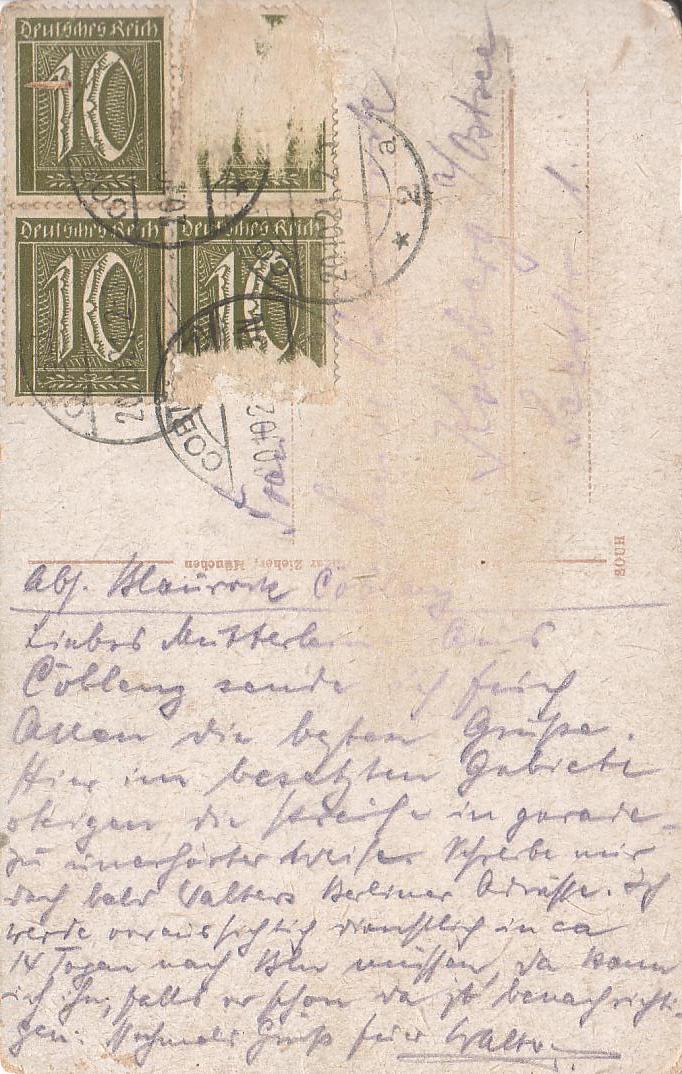 Deutsches Reich
10
Deutsches Reich
10
Deutsches Reich
10
20.10.21
2 a
Frau
Kolberg a/Ostsee
1.
Zieher, München
Abs. Blaurock Coblenz
Liebes Mütterlein Aus
Coblenz sende ich Euch
Allen die besten Grüße.
Hier im besetzten Gebiete
steigen die Preise in gerade-
zu unerhörter Weise. Schreibe mir
doch bald Walters Berliner Adresse. Ich
werde voraussichtlich dienstlich in ca
14 Tagen nach Bln müssen, da kann
ich ihn, falls er schon da ist benachrichti-
gen. Nochmals Gruß Euer Walter